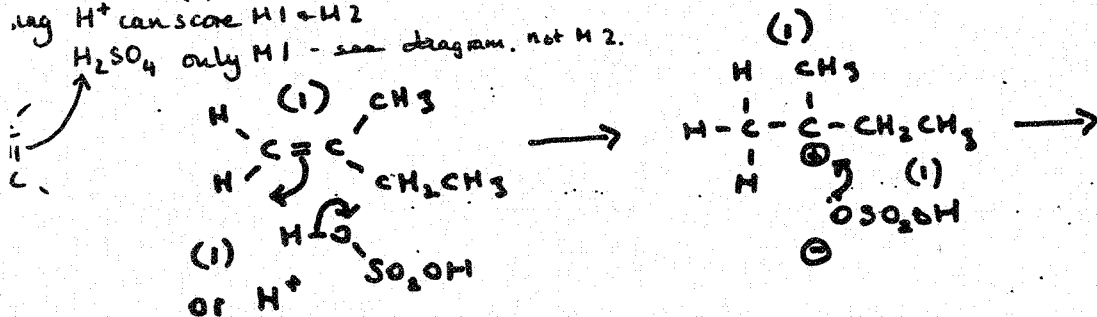 H⁺ can score M1 + M2
H₂SO₄ only M1 - see diagram. not M2.
(1)
H CH₃
C = C
H CH₂CH₃
H-O
SO₂OH
(1)
or H⁺
C
(1)
H CH₃
H - C - C - CH₂CH₃
⊕
H (1)
OSO₂OH
⊖